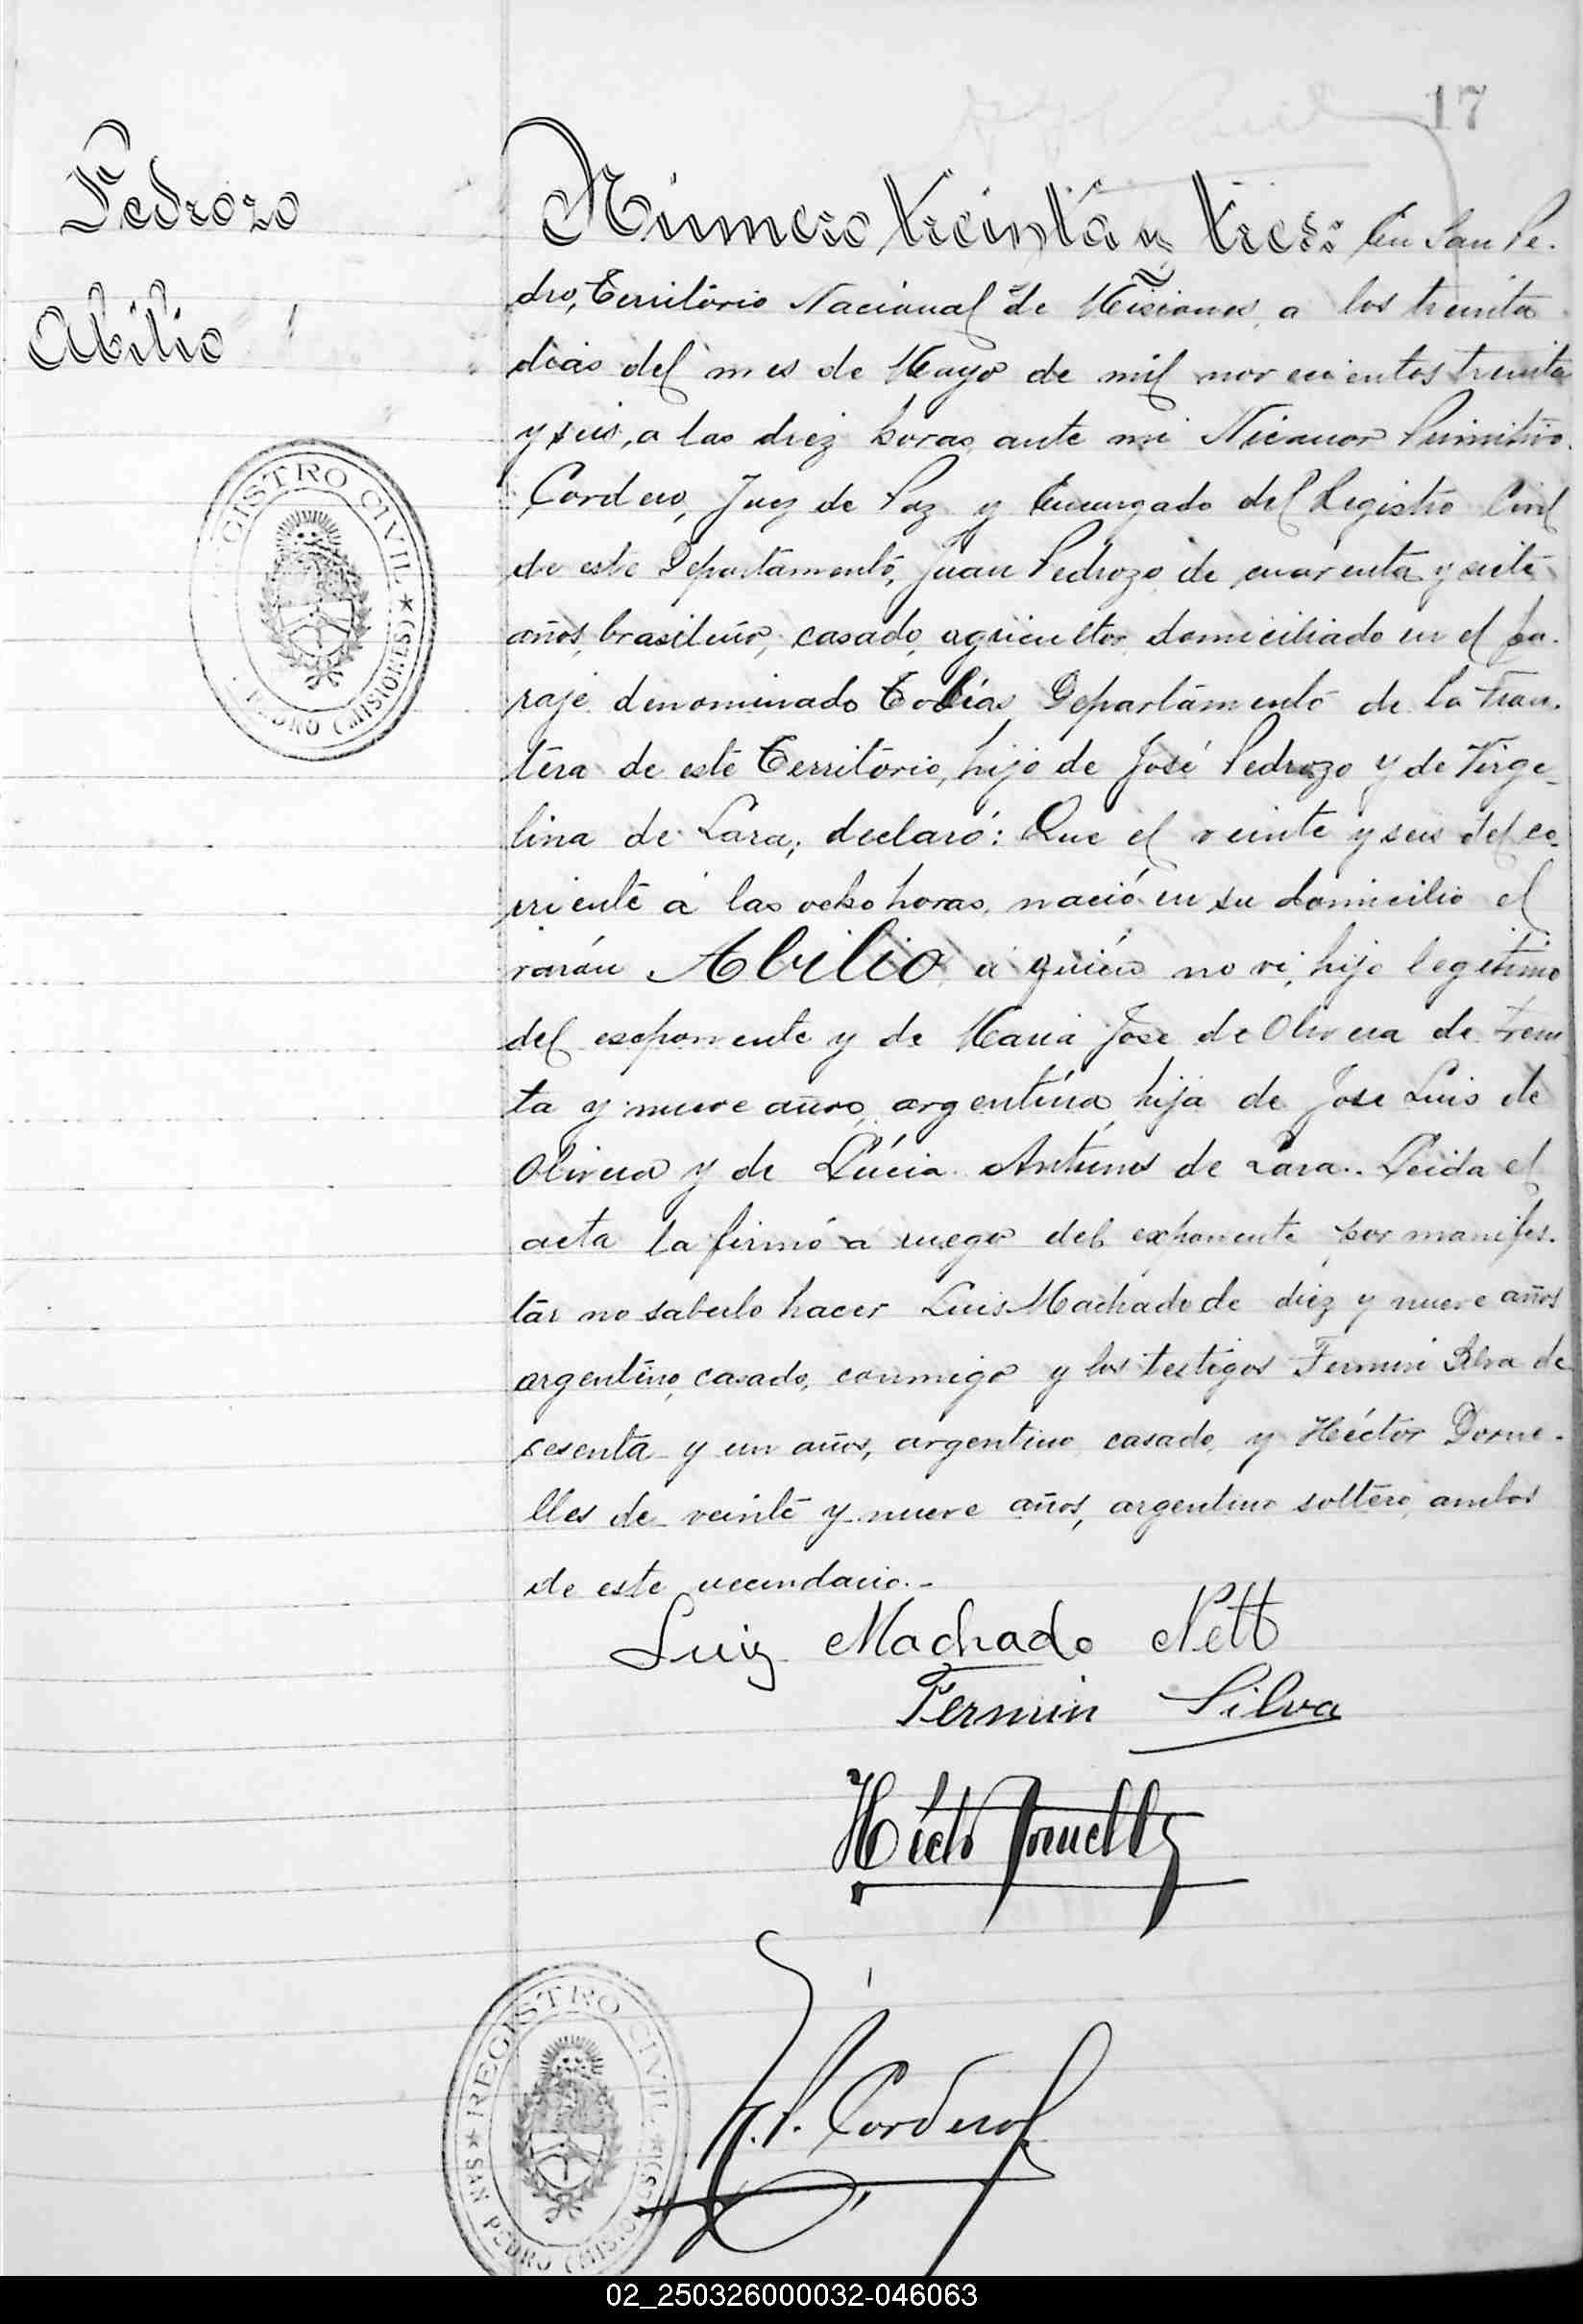 17
Pedrozo
Abilio
Número treinta y tres: En San Pe-
dro, Territorio Nacional de Misiones, a los treinta
dias del mes de Mayo de mil novecientos treinta
y seis, a las diez horas, ante mi Nicanor Primitivo
Cordero, Juez de Paz y Encargado del Registro Civil
de este Departamento, Juan Pedrozo de cuarenta y siete
años, brasileño, casado, agricultor, domiciliado en el pa-
raje denominado Tobías, Departamento de la Fron-
tera de este Territorio, hijo de José Pedrozo y de Virge-
lina de Lara; declaró: Que el veinte y seis del co-
rriente á las ocho horas, nació en su domicilio el
varón Abilio a quién no ví, hijo legítimo
del exponente y de Maria Jose de Olivera de trein
ta y nueve años, argentina, hija de Jose Luis de
Olivera y de Lúcia Antunes de Lara.. Leida el
acta la firmó a ruego del exponente por manifes-
tár no saberlo hacer Luis Machado de diez y nueve años
argentino, casado, conmigo y los testigos Fermin Silva de
sesenta y un años, argentino casado, y Héctor Dorne-
lles de veinte y nueve años, argentino soltero, ambos
de este vecindario.-
Luiz Machado Nett
Fermin Silva
Hécto Dornelles
N.P. Cordero
REGISTRO CIVIL
PEDRO (MISIONES)
REGISTRO CIVIL
SAN PEDRO (MISIONES)
02_250326000032-046063